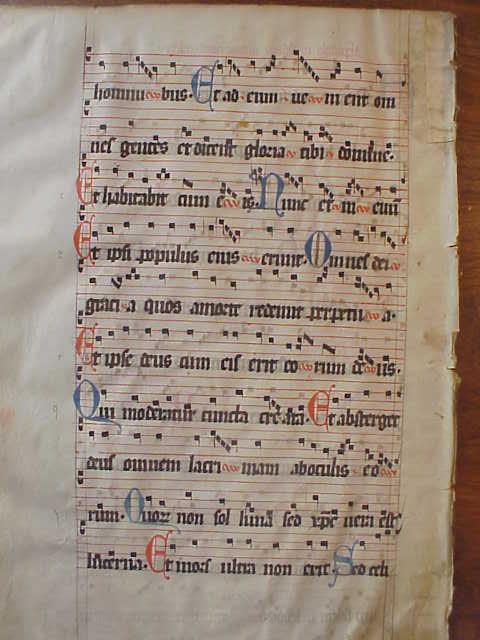 homini bus. Et ad eum ue ni ent om
nes gentes et dicent gloria tibi domine.
Et habitabit cum e is. Nunc et in eum
Et ipsi populus eius erunt. Omnes dei
graci a quos amore redemit perpetu a.
Et ipse deus cum eis erit eo rum de us.
Qui moderatur cuncta creata. Et absterget
deus omnem lacri mam aboculis eo
rum. Quorz non sol luna sed xpe uera est
lucerna. Et mors ultra non erit. Sed celi